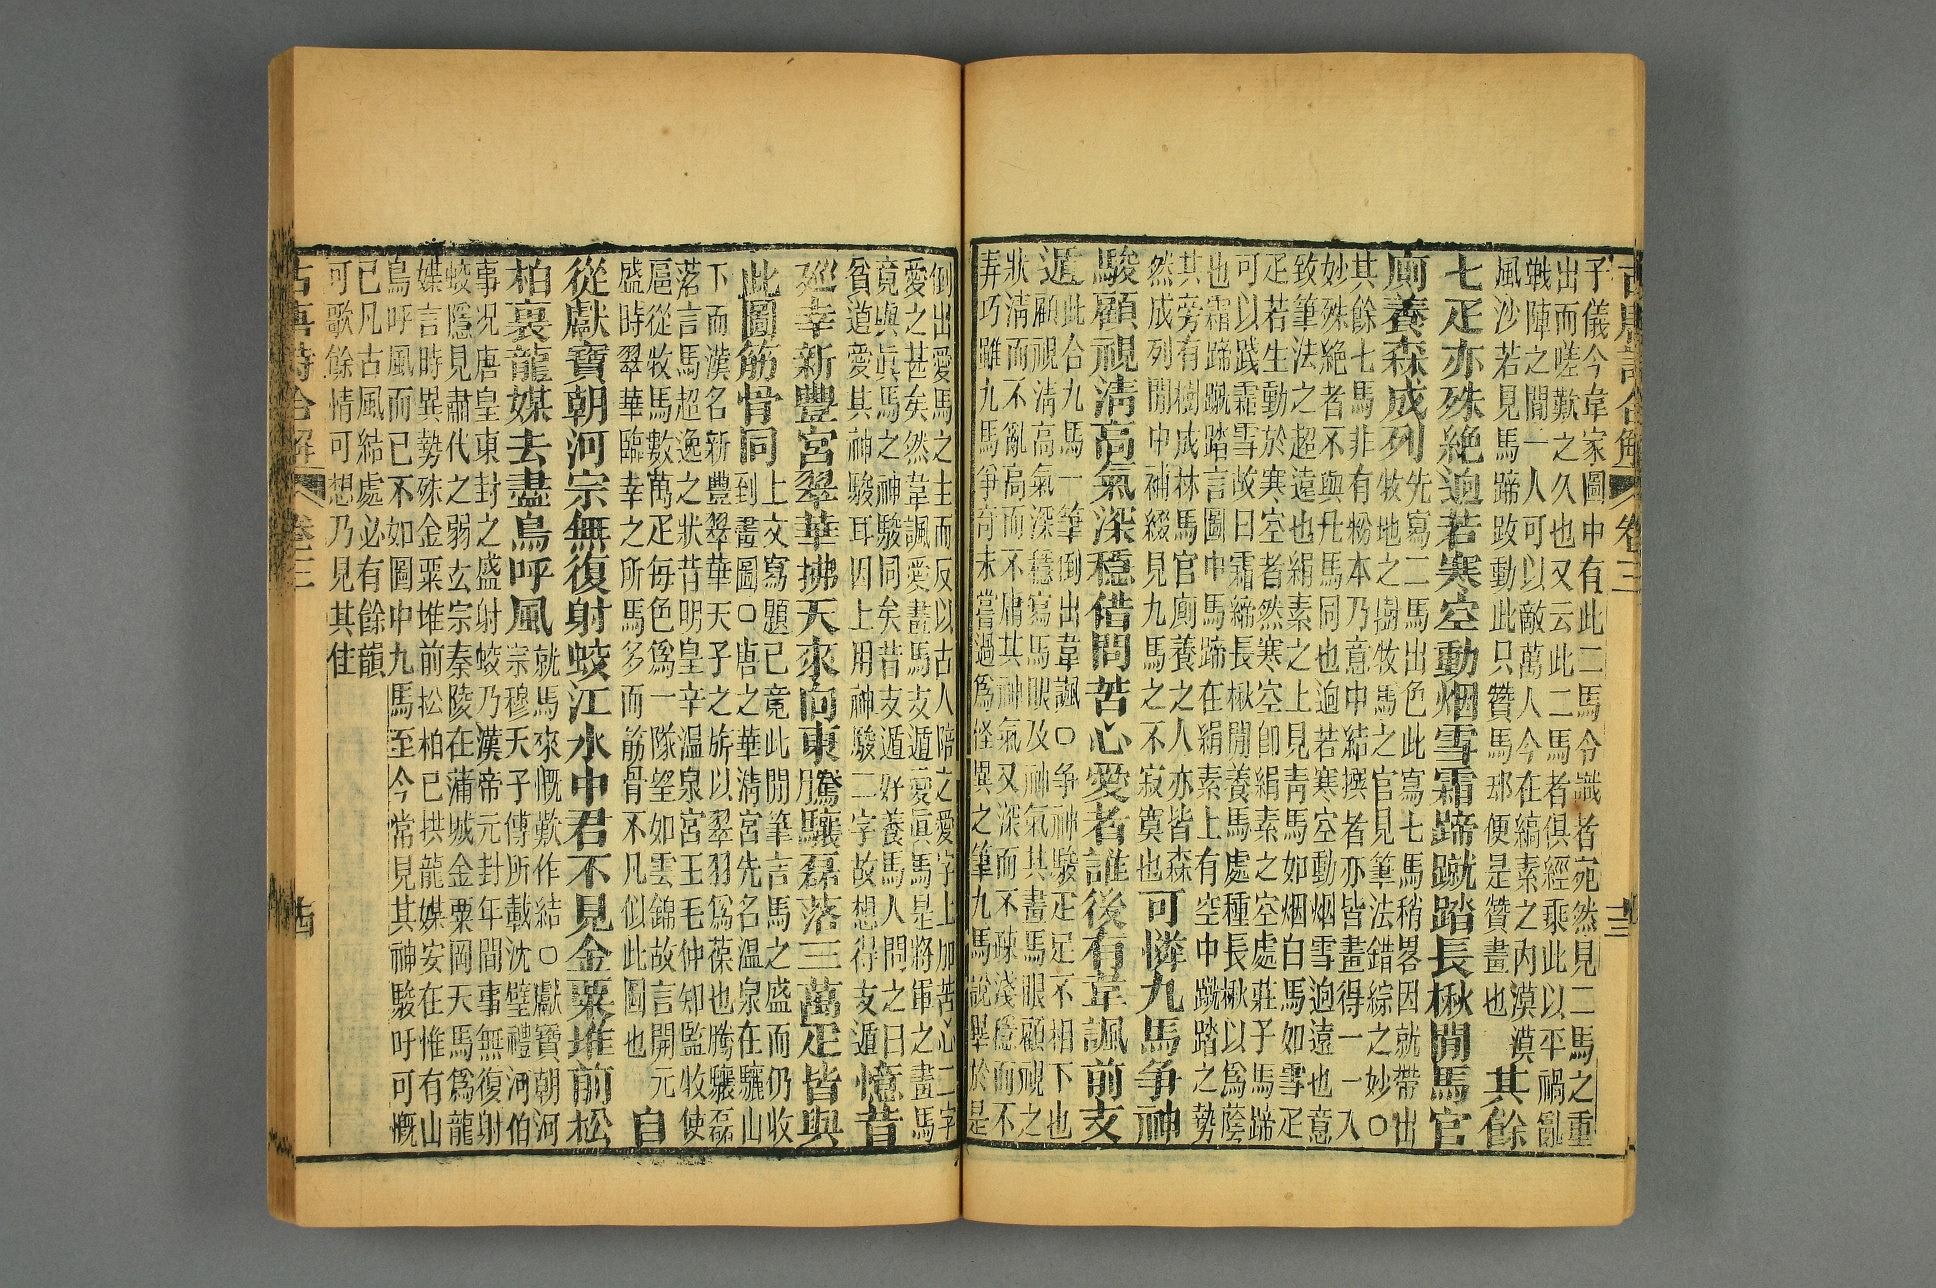 古唐詩合解 卷三 十三
子儀今韋家圖中有此二馬令識者宛然見二馬之重
出而嗟歎之久也又云此二馬者俱經乘此以平禍亂
戰陣之間一人可以敵萬人今在縞素之內漠漠
風沙若見馬蹄跤動此只贊馬耶便是贊畫也
其餘
七疋亦殊絶逈若寒空動烟雪霜蹄蹴踏長楸間馬官
厮養森成列
先寫二馬出色此寫七馬稍畧因就帶出
牧地之樹牧馬之官見筆法錯綜之妙○
其餘七馬非有粉本乃意中結撰者亦皆畫得一一入
妙殊絶者不與凡馬同也逈若寒空動烟雪逈遠也意
致筆法之超遠也絹素之上見靑馬如烟白馬如雪疋
疋若生動於寒空者然寒空卽絹素之空處莊子馬蹄
可以踐霜雪故曰霜蹄長楸間養馬處種長楸以爲蔭
也霜蹄蹴踏言圖中馬蹄在絹素上有空中蹴踏之勢
其旁有樹成林馬官厮養之人亦皆森
然成列間中補綴見九馬之不寂寞也
可憐九馬争神
駿顧視淸高氣深穩借問苦心愛者誰後有韋諷前支
遁
此合九馬一筆倒出韋諷○争神駿疋疋不相下也
顧視淸高氣深穩寫馬眼及神氣其畫馬眼顧視之
狀淸而不亂高而不庸其神氣又深而不疎淺穩而不
弄巧雖九馬爭奇未嘗過爲怪異之筆九馬說畢於是
倒出愛馬之主而反以古人陪之愛字上加苦心二字
愛之甚矣然韋諷愛畫馬支遁愛眞馬是將軍之畫馬
竟與眞馬之神駿同矣昔支遁好養馬人問之曰
貧道愛其神駿耳因上用神駿二字故想得支遁
憶昔
廵幸新豐宮翠華拂天來向東騰驤磊落三萬疋皆與
此圖筋骨同
上文寫題已竟此閒筆言馬之盛而仍收
到畫圖○唐之華淸宮先名温泉在驪山
下而漢名新豐翠華天子之旂以翠羽爲葆也騰驤磊
落言馬超逸之狀昔明皇幸溫泉宮王毛仲知監收使
扈從牧馬數萬疋每色爲一隊望如雲錦故言開元
盛時翠華臨幸之所馬多而筋骨不凡似此圖也
自
從獻寶朝河宗無復射蛟江水中君不見金粟堆前松
柏裏龍媒去盡鳥呼風
就馬來慨歎作結○獻寶朝河
宗穆天子傳所載沈璧禮河伯
事况唐皇東封之盛射蛟乃漢帝元封年間事無復射
蛟隱見肅代之弱玄宗秦陵在蒲城金粟岡天馬爲龍
媒言時異勢殊金粟堆前松柏已拱龍媒安在惟有山
鳥呼風而已不如圖中九馬至今常見其神駿吁可慨
已凡古風結處必有餘韻
可歌餘情可想乃見其佳
古唐詩合解 卷三 十四